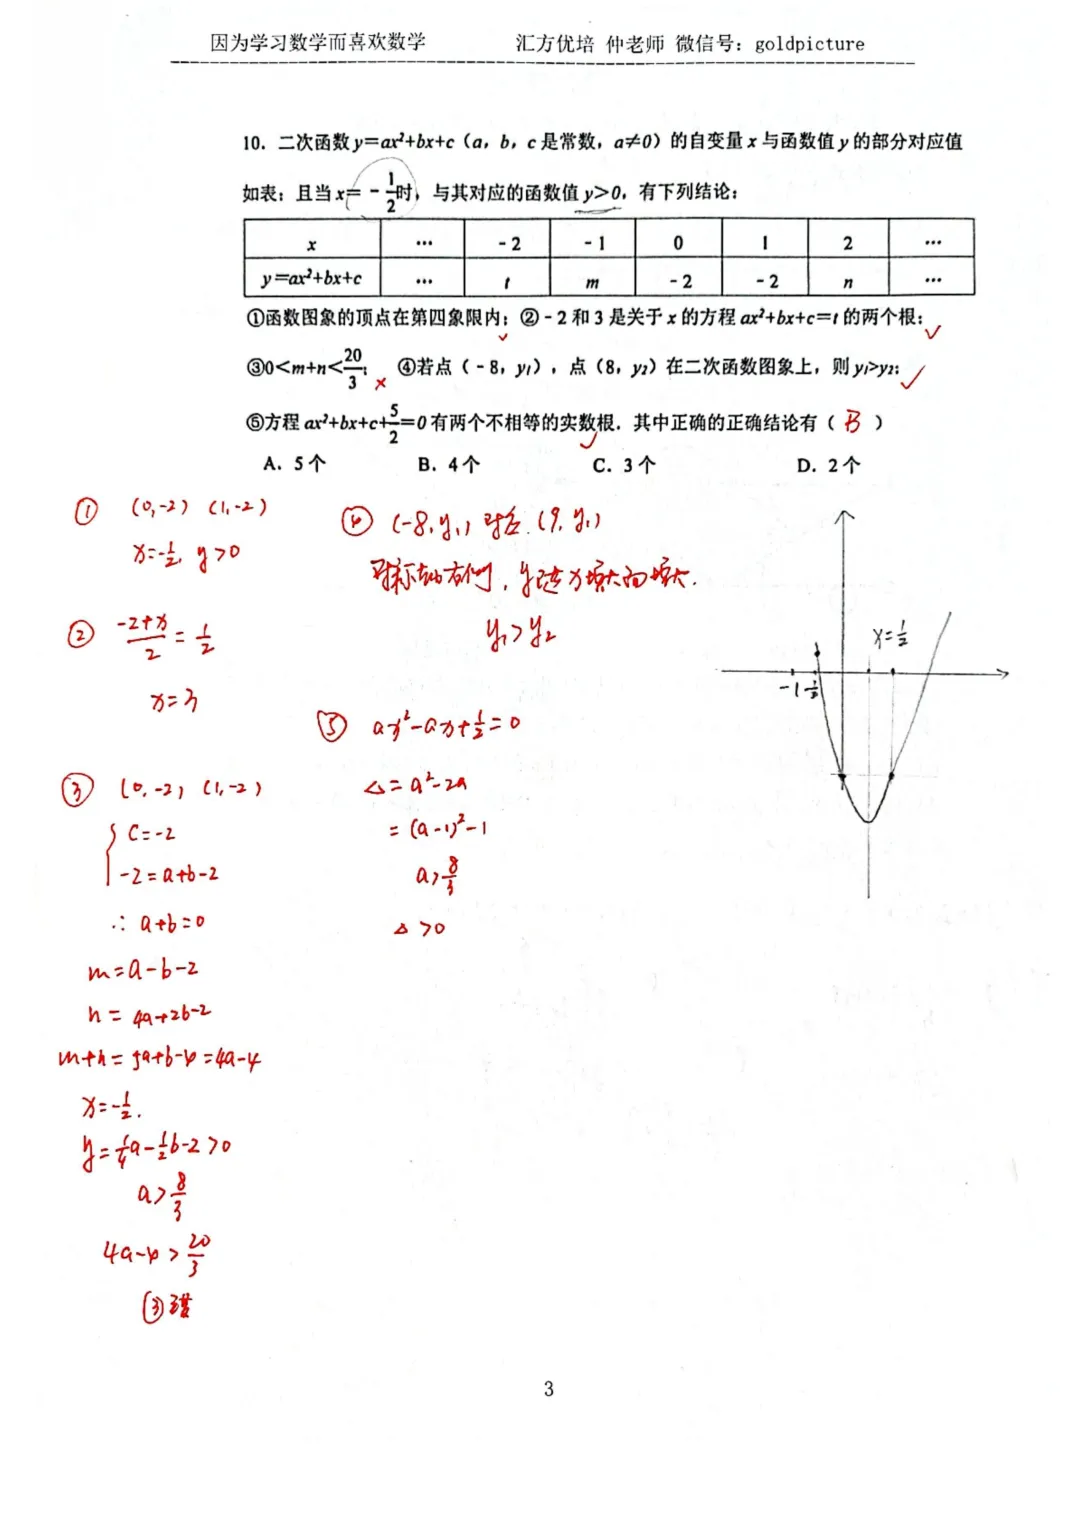 因为学习数学而喜欢数学 汇方优培 仲老师 微信号：goldpicture
10．二次函数y=ax²+bx+c（a，b，c是常数，a≠0）的自变量x与函数值y的部分对应值
如表：且当x=-1/2时，与其对应的函数值y>0，有下列结论：
x … -2 -1 0 1 2 …
y=ax²+bx+c … t m -2 -2 n …
①函数图象的顶点在第四象限内；②-2和3是关于x的方程ax²+bx+c=t的两个根；
③0<m+n<20/3；④若点（-8，y₁），点（8，y₂）在二次函数图象上，则y₁>y₂；
⑤方程ax²+bx+c+5/2=0有两个不相等的实数根．其中正确的正确结论有（ B ）
A．5个 B．4个 C．3个 D．2个
① (0,-2) (1,-2)
x=-1/2, y>0
② (-2+x)/2=1/2
x=3
③ (0,-2) (1,-2)
c=-2
-2=a+b-2
∴ a+b=0
m=a-b-2
n=4a+2b-2
m+n=5a+b-4=4a-4
x=-1/2.
y=1/4a-1/2b-2>0
a>8/3
4a-4>20/3
③错
④ (-8,y₁) 对名 (9,y₁)
对称轴右侧，y随x增大而增大.
y₁>y₂
⑤ ax²-ax+1/2=0
△=a²-2a
=(a-1)²-1
a>8/3
△>0
x=1/2
-1 -1/2
3